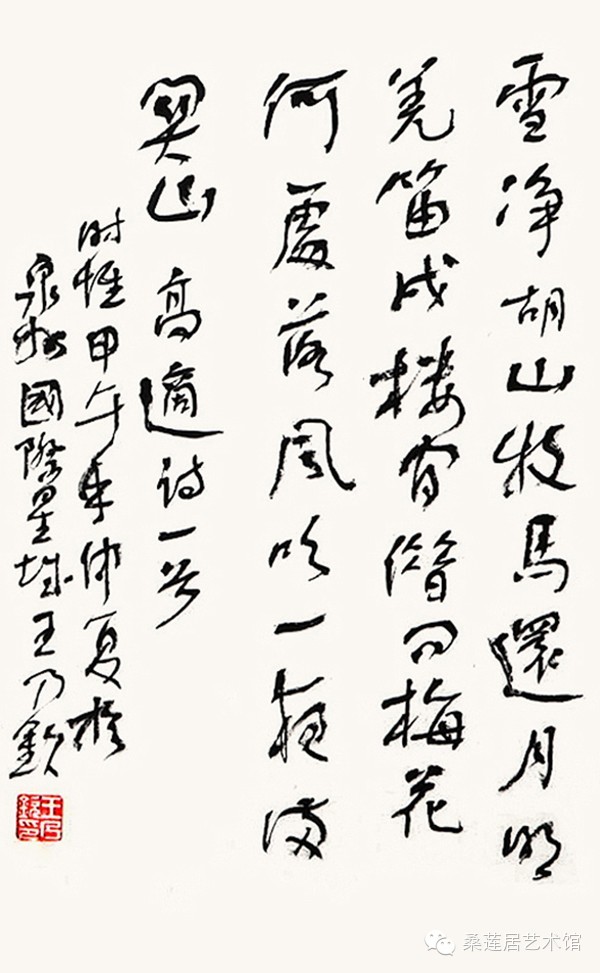 雪净胡山牧馬還月明
羌笛戍楼间借问梅花
何處落風吹一夜满
関山 高適诗一首
时惟甲午年仲夏於
泉州國際星城王乃欽
王乃欽印
桑莲居艺术馆